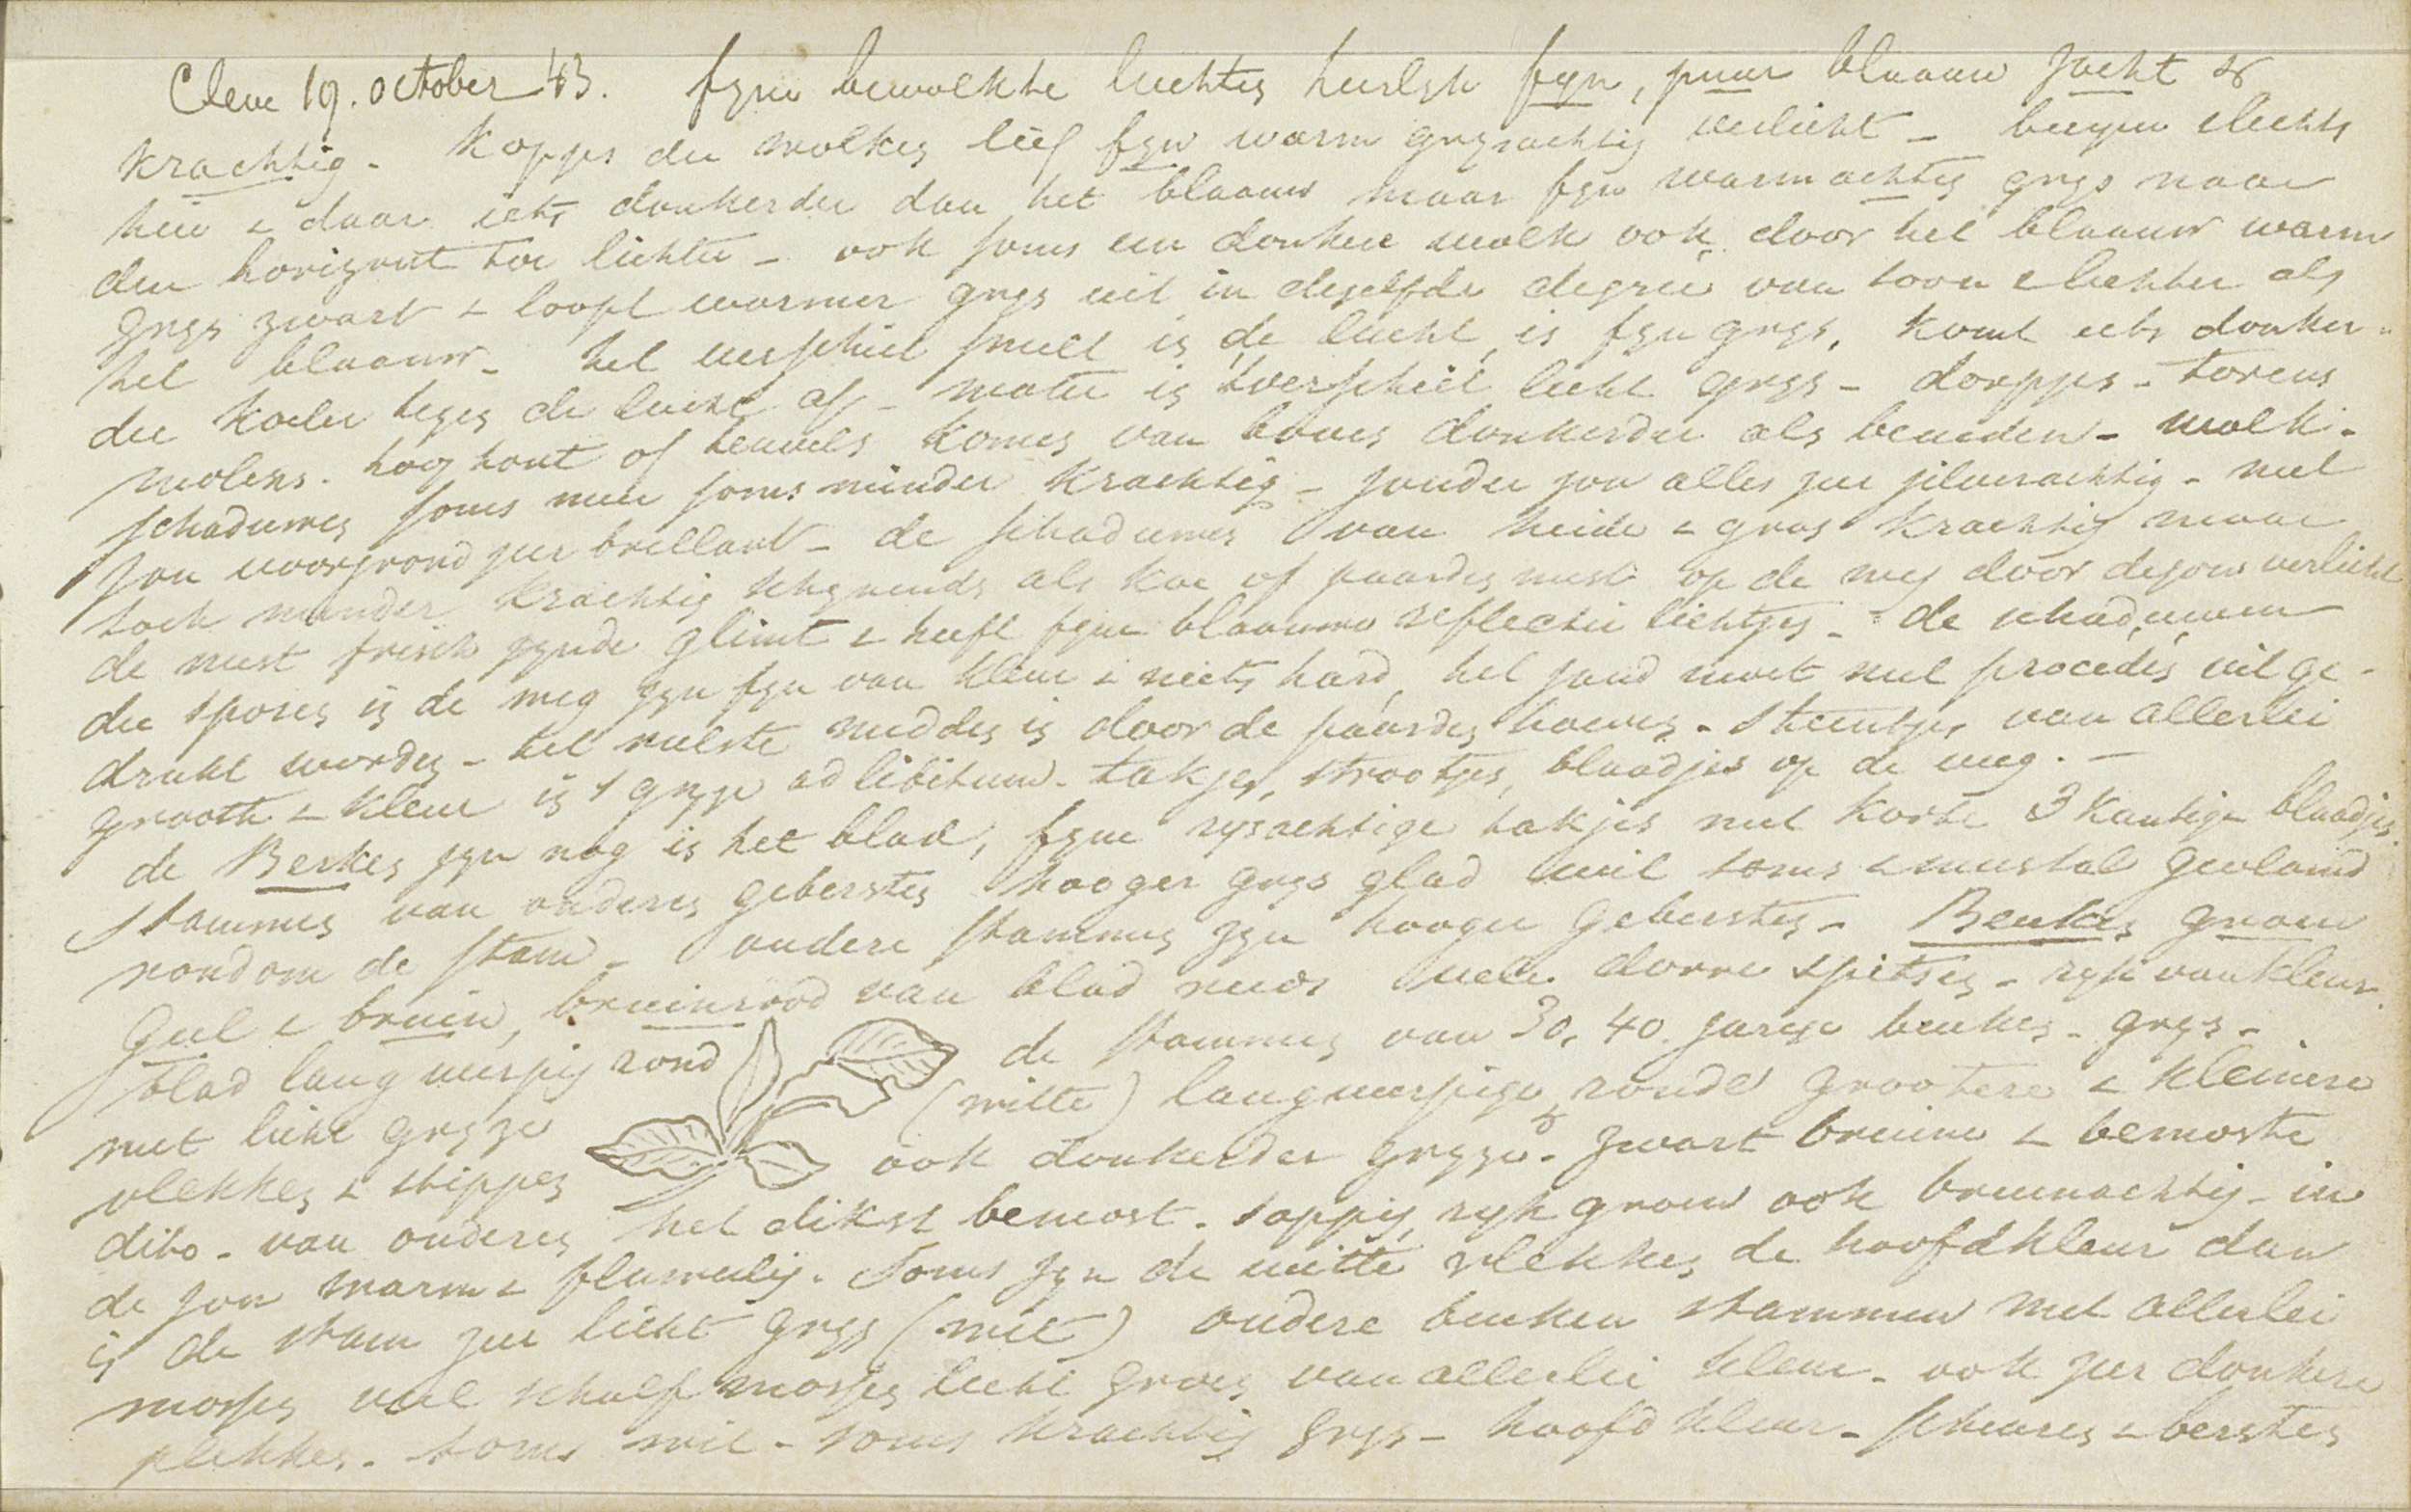 Cleve 19. october 43. fyne bewolkte luchtes heerlyk fyn, puur blaauw zacht &
krachtig. Kopjes der wolkes lief fyn warm grysachtig verlicht - slechts
hier & daar iets donkerder dan het blaauw maar fyn warmachtig grys naar
den horizont toe lichter - ook soms een donkere wolk ook door het blaauw warm
grys zwart & loopt warmer grys uit in dezelfde degrée van toon & lichter als
het blaauw - het verschiet smelt in de lucht, is fyn grys, komt iets donker-
der koeler teges de lucht af - water in 't verschiet licht grys - dorpjes - torens
molens. hoog hout of heuvels komes van boves donkerder als beneden - wolk-
schaduwes soms meer soms minder krachtig - zonder zon alles zeer zilverachtig - met
zon voorgrond zeer brillant - de schaduwes van heide & gras krachtig maar
toch minder krachtig schynende als koe of paardes mest op de weg door de zon verlicht
de mest frisch zynde glimt & heeft fyne blaauwe reflectie lichtjes - de schaduwen
der spores in de weg zyn fyn van kleur & niets hard, het zand moet met procédés uitge-
drukt wordes - het mulste middes in door de paardes hoeves - steentjes van allerlei
grootte & kleur in 't gryze ad libitum - takjes, strootjes, blaadjes op de weg. -
de Berkes zyn nog in het blad, fyne rysachtige takjes met korte 3 kantige blaadjes.
Stammes van onderes geberstes hooger grys glad wit soms & meestal gevlamd
rondom de stam - andere stammes zyn hooger geberstes - Beukes groen
geel & bruin, bruinrood van blad meer veel dorre spitses - ryk van kleur.
blad langwerpig rond de stammes van 30, 40 jarige beukes - grys -
met licht gryze (witte) langwerpige ronde grootere & kleinere
vlekkes & stippes ook donkerder gryze & zwart bruine & bemoste
dito - van onderes het dikst bemost - sappig, ryk groen ook bruinachtig - in
de zon warm & fluweelig. Soms zyn de witte vlekkes de hoofdkleur dan
is de stam zeer licht grys (wit) oudere beuken stammen met allerlei
mosjes veel schulp mosjes licht groes van allerlei kleur - ook zeer donkere
plekkes - soms wit - soms krachtig grys - hoofd kleur - scheures & berstes